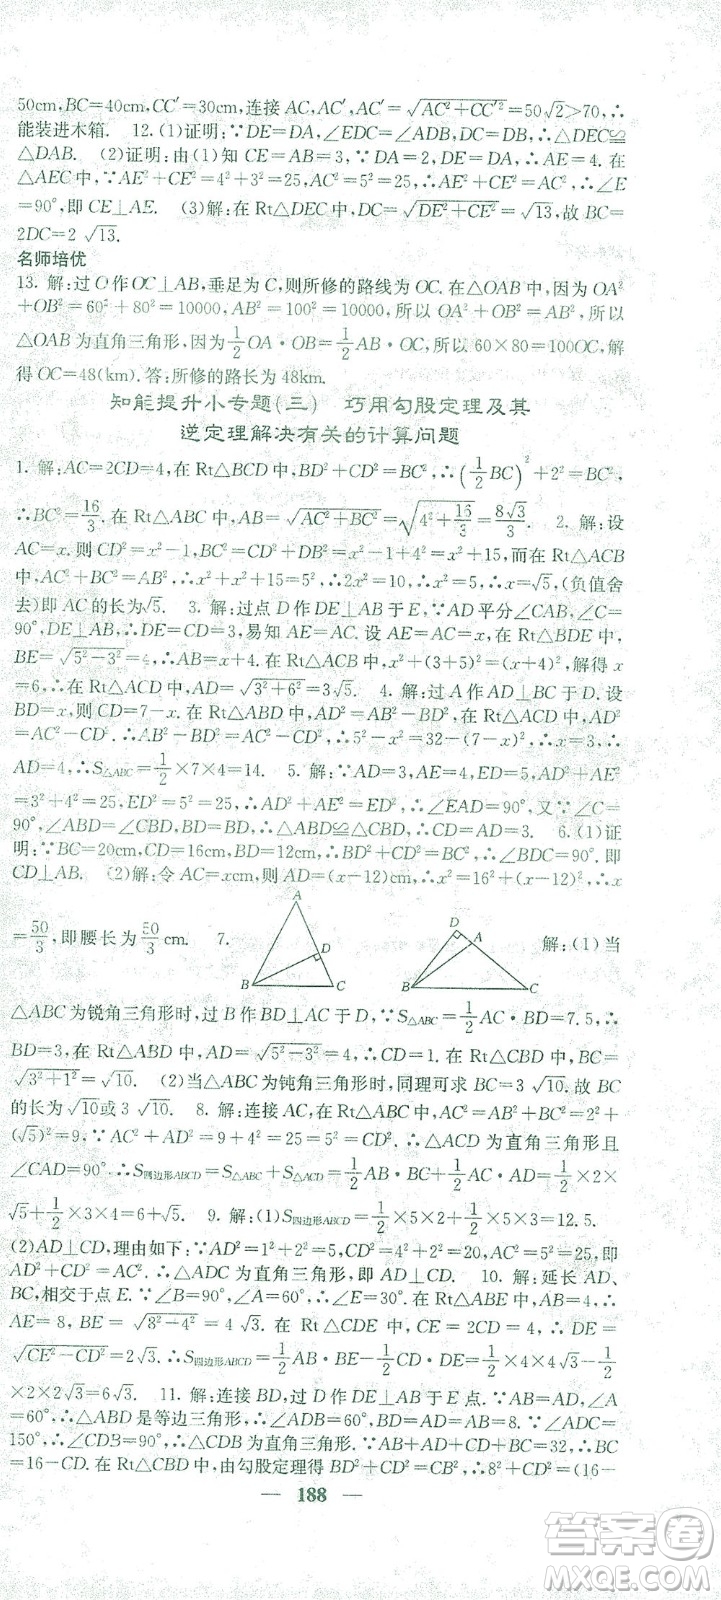 50cm，BC=40cm，CC′=30cm，连接 AC，AC′，AC′=√(AC²+CC′²)=50√2>70，∴
能装进木箱. 12. (1)证明：∵DE=DA，∠EDC=∠ADB，DC=DB，∴△DEC≌
△DAB. (2)证明：由(1)知 CE=AB=3，∵DE=DA=2，∴AE=4. 在
△AEC 中，∵AE²+CE²=4²+3²=25，AC²=5²=25，∴AE²+CE²=AC²，∴∠E
=90°，即 CE⊥AE. (3)解：在 Rt△DEC 中，DC=√(DE²+CE²)=√13，故 BC=
2DC=2√13.
名师培优
13. 解：过 O 作 OC⊥AB，垂足为 C，则所修的路线为 OC. 在△OAB 中，因为 OA²
+OB²=60²+80²=10000，AB²=100²=10000，所以 OA²+OB²=AB²，所以
△OAB 为直角三角形，因为 1/2 OA·OB=1/2 AB·OC，所以 60×80=100OC，解
得 OC=48(km). 答：所修的路长为 48km.
知能提升小专题(三) 巧用勾股定理及其
逆定理解决有关的计算问题
1. 解：AC=2CD=4，在 Rt△BCD 中，BD²+CD²=BC²，∴(1/2 BC)²+2²=BC²，
∴BC²=16/3. 在 Rt△ABC 中，AB=√(AC²+BC²)=√(4²+16/3)=8√3/3. 2. 解：设
AC=x. 则 CD²=x²-1，BC²=CD²+BD²=x²-1+4²=x²+15，而在 Rt△ACB
中，AB²=AC²+BC²，即 5²=x²+x²+15，∴2x²=10，∴x²=5，∴x=√5，(负值舍
去)即 AC 的长为√5. 3. 解：过点 D 作 DE⊥AB 于 E，∵AD 平分∠CAB，∠C=
90°，DE⊥AB，∴DE=DC=3，易知 AE=AC. 设 AE=AC=x，在 Rt△BDE 中，
BE=√(5²-3²)=4，∴AB=x+4. 在 Rt△ABC 中，(x+4)²=(3+5)²+x²，解得 x
=6，∴在 Rt△ACD 中，AD=√(3²+6²)=3√5. 4. 解：过 A 作 AD⊥BC 于 D. 设
BD=x，则 CD=7-x，在 Rt△ABD 中，AD²=AB²-BD²，在 Rt△ACD 中，AD²=
AC²-CD²，∴AB²-BD²=AC²-CD²，即 5²-x²=32-(7-x)²，∴x=3，∴
AD=4，∴S△ABC=1/2×7×4=14. 5. 解：∵AD=3，AE=4，ED=5，∴AD²+AE²
=3²+4²=25，ED²=5²=25，∴AD²+AE²=ED²，∴∠EAD=90°，又∵∠C=
90°，∠ABD=∠CBD，BD=BD，∴△ABD≌△CBD，∴CD=AD=3. 6. (1)证
明：∵BC=20cm，CD=16cm，BD=12cm，∴BD²+CD²=BC²，∴∠BDC=90°. 即
CD⊥AB. (2)解：令 AC=xcm，则 AD=(x-12)cm，∴x²=16²+(x-12)²，∴x
=50/3，即腰长为 50/3 cm. 7. 解：(1)当
A
D
B
C
D
A
B
C
△ABC 为锐角三角形时，过 B 作 BD⊥AC 于 D，∵S△ABC=1/2 AC·BD=7.5，∴
BD=3. 在 Rt△ABD 中，AD=√(5²-3²)=4，∴CD=1. 在 Rt△BCD 中，BC=
√(3²+1²)=√10. (2)当△ABC 为钝角三角形时，同理可求 BC=3√10. 故 BC
的长为√10或 3√10. 8. 解：连接 AC，在 Rt△ABC 中，AC²=AB²+BC²=2²+
(√5)²=9，∵AC²+AD²=9+4²=25=5²=CD²，∴△ACD 为直角三角形且
∠CAD=90°. ∴S四边形ABCD=S△ABC+S△ACD=1/2 AB·BC+1/2 AC·AD=1/2×2×
√5+1/2×3×4=6+√5. 9. 解：(1)S四边形ABCD=1/2×5×2+1/2×5×3=12.5.
(2)AD⊥CD，理由如下：∵AD²=1²+2²=5，CD²=2²+4²=20，AC²=5²=25，
∴AD²+CD²=AC²，∴△ADC 为直角三角形，即 AD⊥CD. 10. 解：延长 AD、
BC，相交于点 E. ∵∠B=90°，∠A=60°，∴∠E=30°. 在 Rt△ABE 中，AB=4，∴
AE=8，BE=√(8²-4²)=4√3. 在 Rt△DCE 中，CD=2，∴CE=4，∴DE=
√(CE²-CD²)=2√3. ∴S四边形ABCD=1/2 AB·BE-1/2 CD·DE=1/2×4×4√3-1/2
×2×2√3=6√3. 11. 解：连接 BD，过 D 作 DE⊥AB 于 E 点. ∵AB=AD，∠A
=60°，∴△ABD 是等边三角形，∴BD=AB=AD=8. ∵∠ADB=60°，∠ADC=
150°，∴∠CDB=90°，∴△CDB 为直角三角形. ∵AB+AD+CD+BC=32，∴BC
=16-CD. 在 Rt△CBD 中，由勾股定理得 BD²+CD²=BC²，即 8²+CD²=(16-
188
答案圈